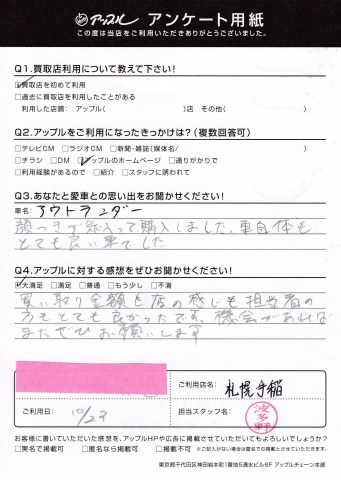 アップル アンケート用紙
この度は当店をご利用いただきありがとうございました。
Q1.買取店利用について教えて下さい!
☑買取店を初めて利用
□過去に買取店を利用したことがある
利用した店舗: アップル( )店 その他( )
Q2.アップルをご利用になったきっかけは?(複数回答可)
□テレビCM □ラジオCM □新聞・雑誌(媒体名/ )
□チラシ □DM ☑アップルのホームページ □通りがかりで
□利用経験があるので □紹介 □スタッフに誘われて
Q3.あなたと愛車との思い出をお聞かせください!
車名: アウトランダー
顔つきが気入って購入しました、車自体も
とても良い車でした
Q4.アップルに対する感想をぜひお聞かせください!
☑大満足 □満足 □普通 □もう少し □不満
買い取り金額も店の感じも担当者の
方もとても良かったです、機会があれば
またぜひお願いします
ご利用店名: 札幌手稲
ご利用日: 10/23
担当スタッフ名: 波多野
お客様に書いていただいた感想を、アップルHPや広告に掲載させていただいてもよろしいでしょうか?
□実名で掲載可 □匿名なら掲載可 □掲載不可 ※ご記入がない場合は匿名での掲載とさせていただきます。
東京都千代田区神田岩本町1番地5清水ビル8F アップルチェーン本部